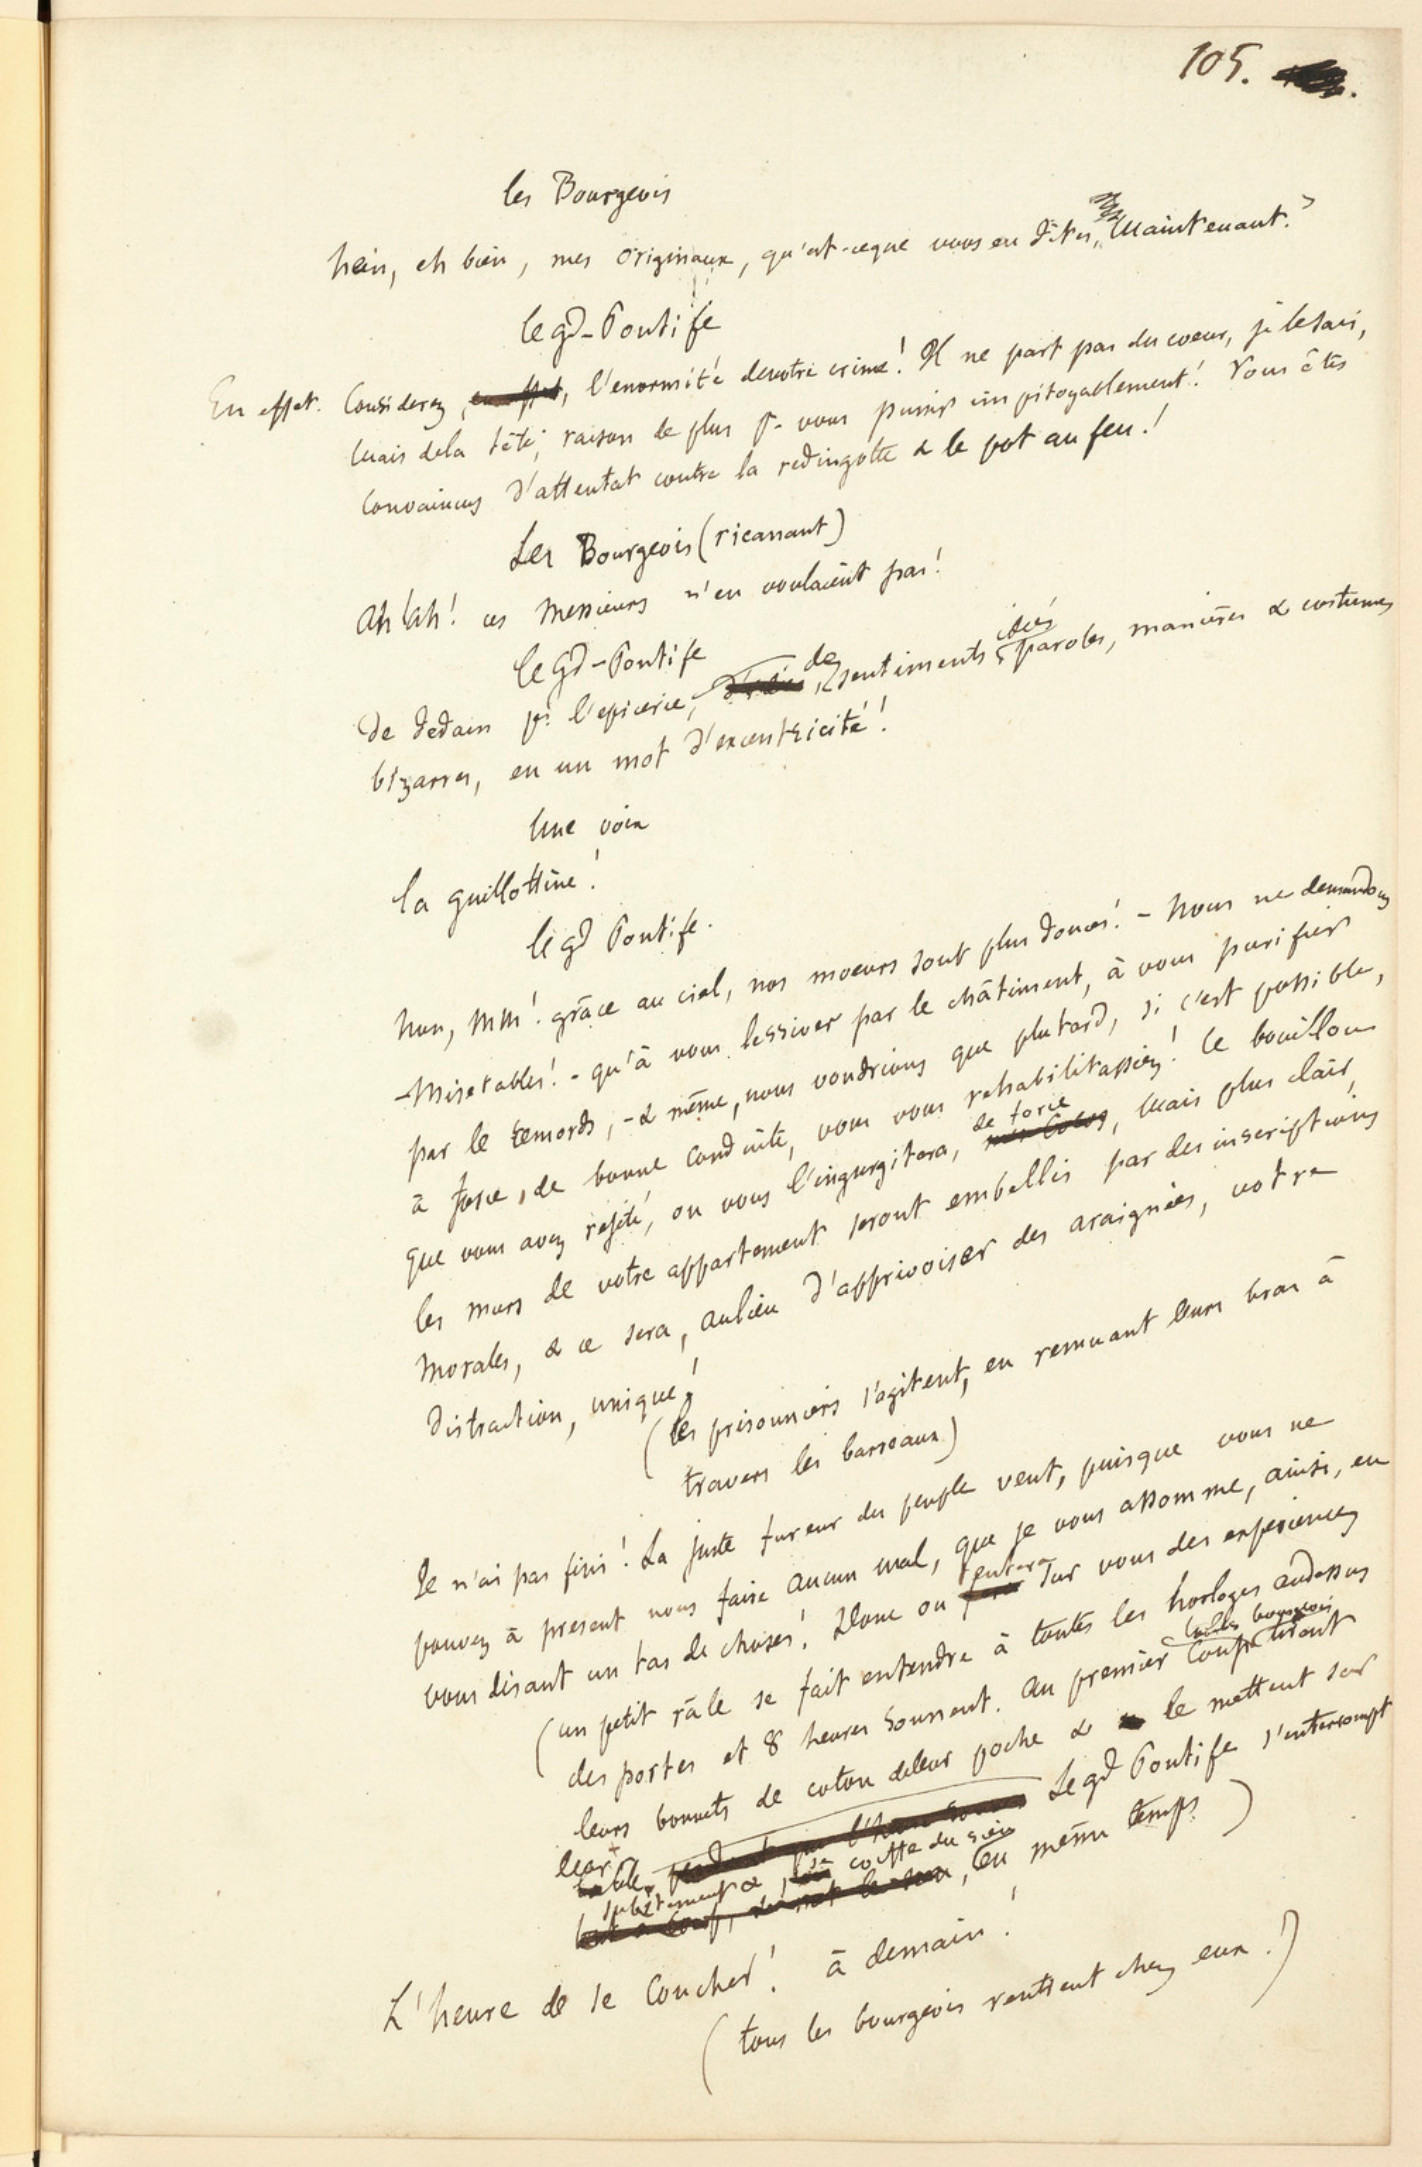 105.
les Bourgeois
hein, eh bien, mes originaux, qu'est-ceque vous en dites, maintenant?
le gd-Pontife
En effet. Considerez, en effet, l'enormité devotre crime! Il ne part pas du coeur, je lesais,
mais dela tête; raison de plus pr vous punir impitoyablement! Vous êtes
convaincus d'attentat contre la redingotte & le pot au feu!
Les Bourgeois (ricanant)
Ah! ah! ces Messieurs n'en voulaient pas!
le Gd-Pontife
idées
de
De dedain pr l'epicerie, sentiments, paroles, manières & costumes
bizarres, en un mot d'excentricité!
Une voix
la guillottine!
le gd Pontife.
Non, MM! grâce au ciel, nos moeurs sont plus douces! - Nous ne demandons
- Miserables! - qu'à vous lessiver par le châtiment, à vous purifier
par le remords, - & même, nous voudrions que plutard, si c'est possible,
à force, de bonne conduite, vous vous rehabilitassiez! Le bouillon
de force
que vous avez rejeté, on vous l'ingurgitera, mais plus clair,
les murs de votre appartement seront embellis par des inscriptions
morales, & ce sera, aulieu d'apprivoiser des araignées, votre
distraction, unique!
(les prisonniers s'agitent, en remuant leurs bras à
travers les barreaux)
Je n'ai pas fini! La juste fureur du peuple veut, puisque vous ne
pouvez à present nous faire aucun mal, que je vous assomme, ainsi, en
tentera
vous disant un tas de choses! Donc on fera sur vous des experiences
(un petit râle se fait entendre à toutes les horloges audessus
tous les bourgeois
des portes et 8 heures sonnent. Au premier coup tirent
leurs bonnets de coton deleur poche & le mettent sur
leur tête, Le gd Pontife s'interrompt
subitement & se coiffe du sien
en même temps)
L'heure de se coucher! à demain!
(tous les bourgeois rentrent chez eux!)